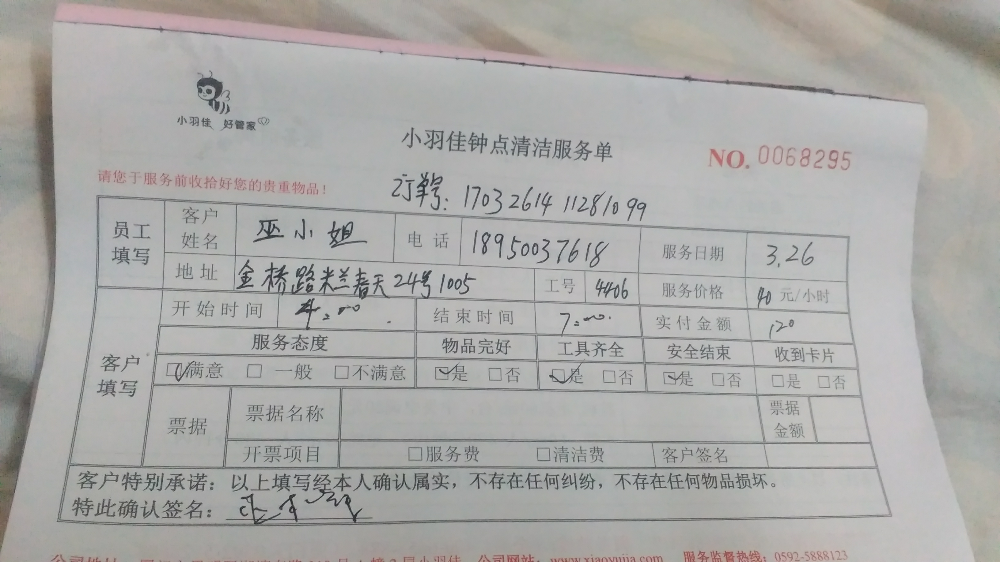 小羽佳 好管家
小羽佳钟点清洁服务单
NO. 0068295
请您于服务前收拾好您的贵重物品！
订单号：1703261411281099
员工填写 客户姓名 巫小姐 电话 18950037618 服务日期 3.26
地址 金桥路米兰春天24号1005 工号 4406 服务价格 40 元/小时
客户填写 开始时间 4:00 结束时间 7:00 实付金额 120
服务态度 物品完好 工具齐全 安全结束 收到卡片
☑满意 □一般 □不满意 ☑是 □否 ☑是 □否 ☑是 □否 □是 □否
票据 票据名称 票据金额
开票项目 □服务费 □清洁费 客户签名
客户特别承诺：以上填写经本人确认属实，不存在任何纠纷，不存在任何物品损坏。
特此确认签名：
公司网站：www.xiaoyujia.com 服务监督热线：0592-5888123